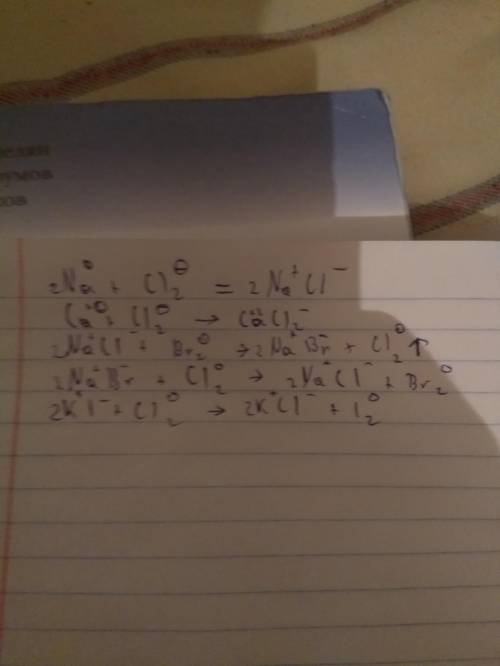 елян
румов
ров
2Na⁰ + Cl₂⁰ = 2Na⁺Cl⁻
Ca⁰ + Cl₂⁰ → Ca⁺²Cl₂⁻
2Na⁺Cl⁻ + Br₂⁰ → 2Na⁺Br⁻ + Cl₂⁰ ↑
2Na⁺Br⁻ + Cl₂⁰ → 2Na⁺Cl⁻ + Br₂⁰
2K⁺I⁻ + Cl₂⁰ → 2K⁺Cl⁻ + I₂⁰